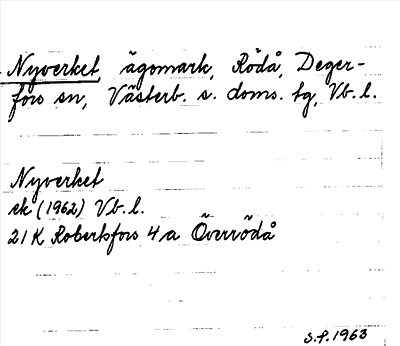 Nyverket, ägomark, Rödå, Deger-
fors sn, Västerb. s. doms. tg, Vb. l.
Nyverket
ek (1962) Vb. l.
21 K Robertsfors 4 a Överrödå
S.P. 1963